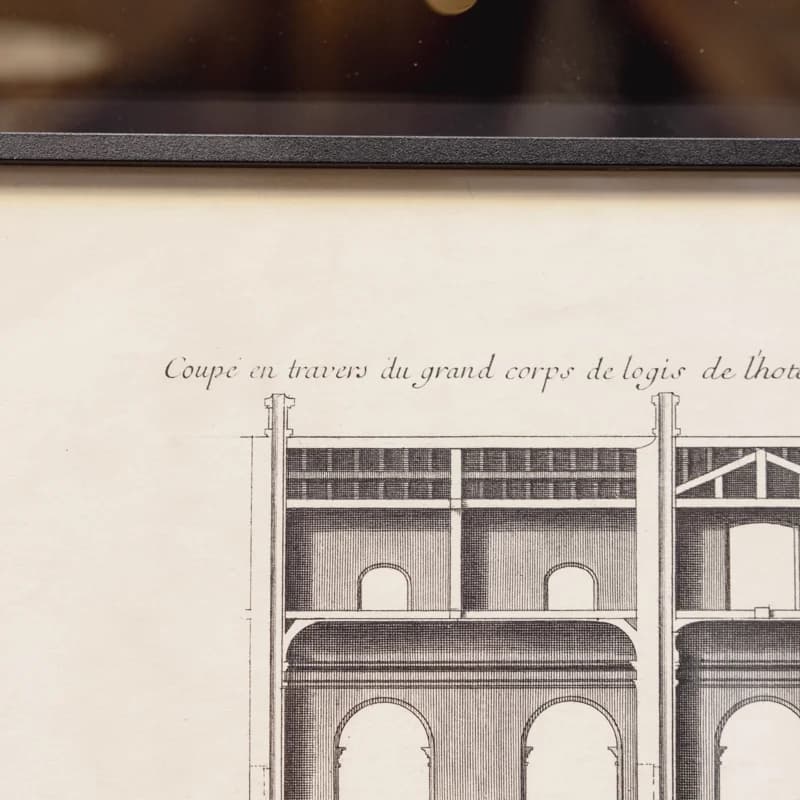 Coupé en travers du grand corps de logis de l'hote